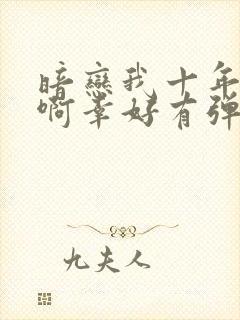 暗戀我十年
啊幸好有彈
九夫人